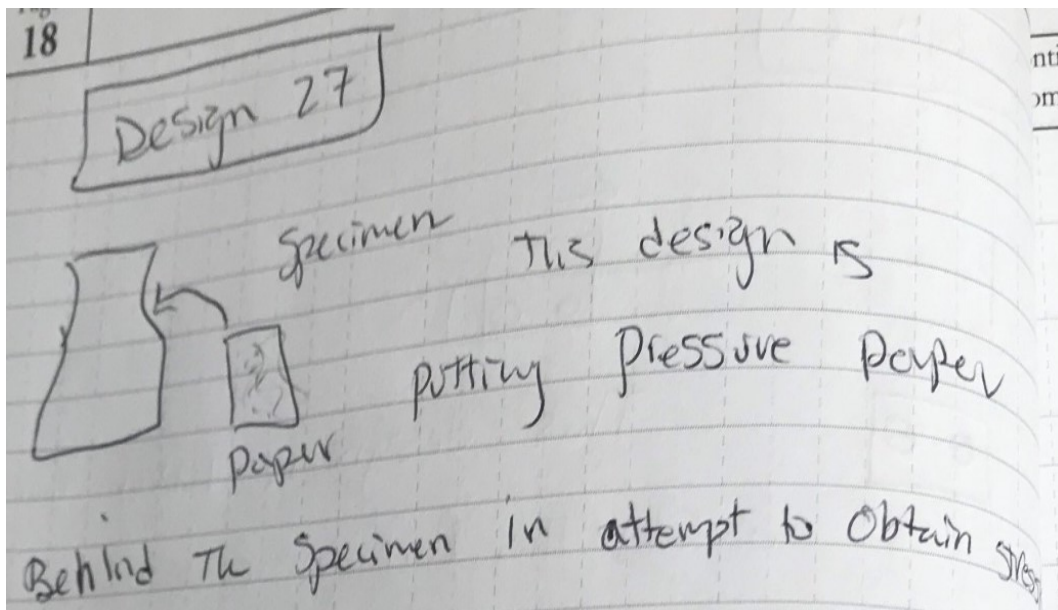 18
Design 27
Specimen This design is
putting Pressure Paper
paper
Behind The Specimen in attempt to Obtain stress